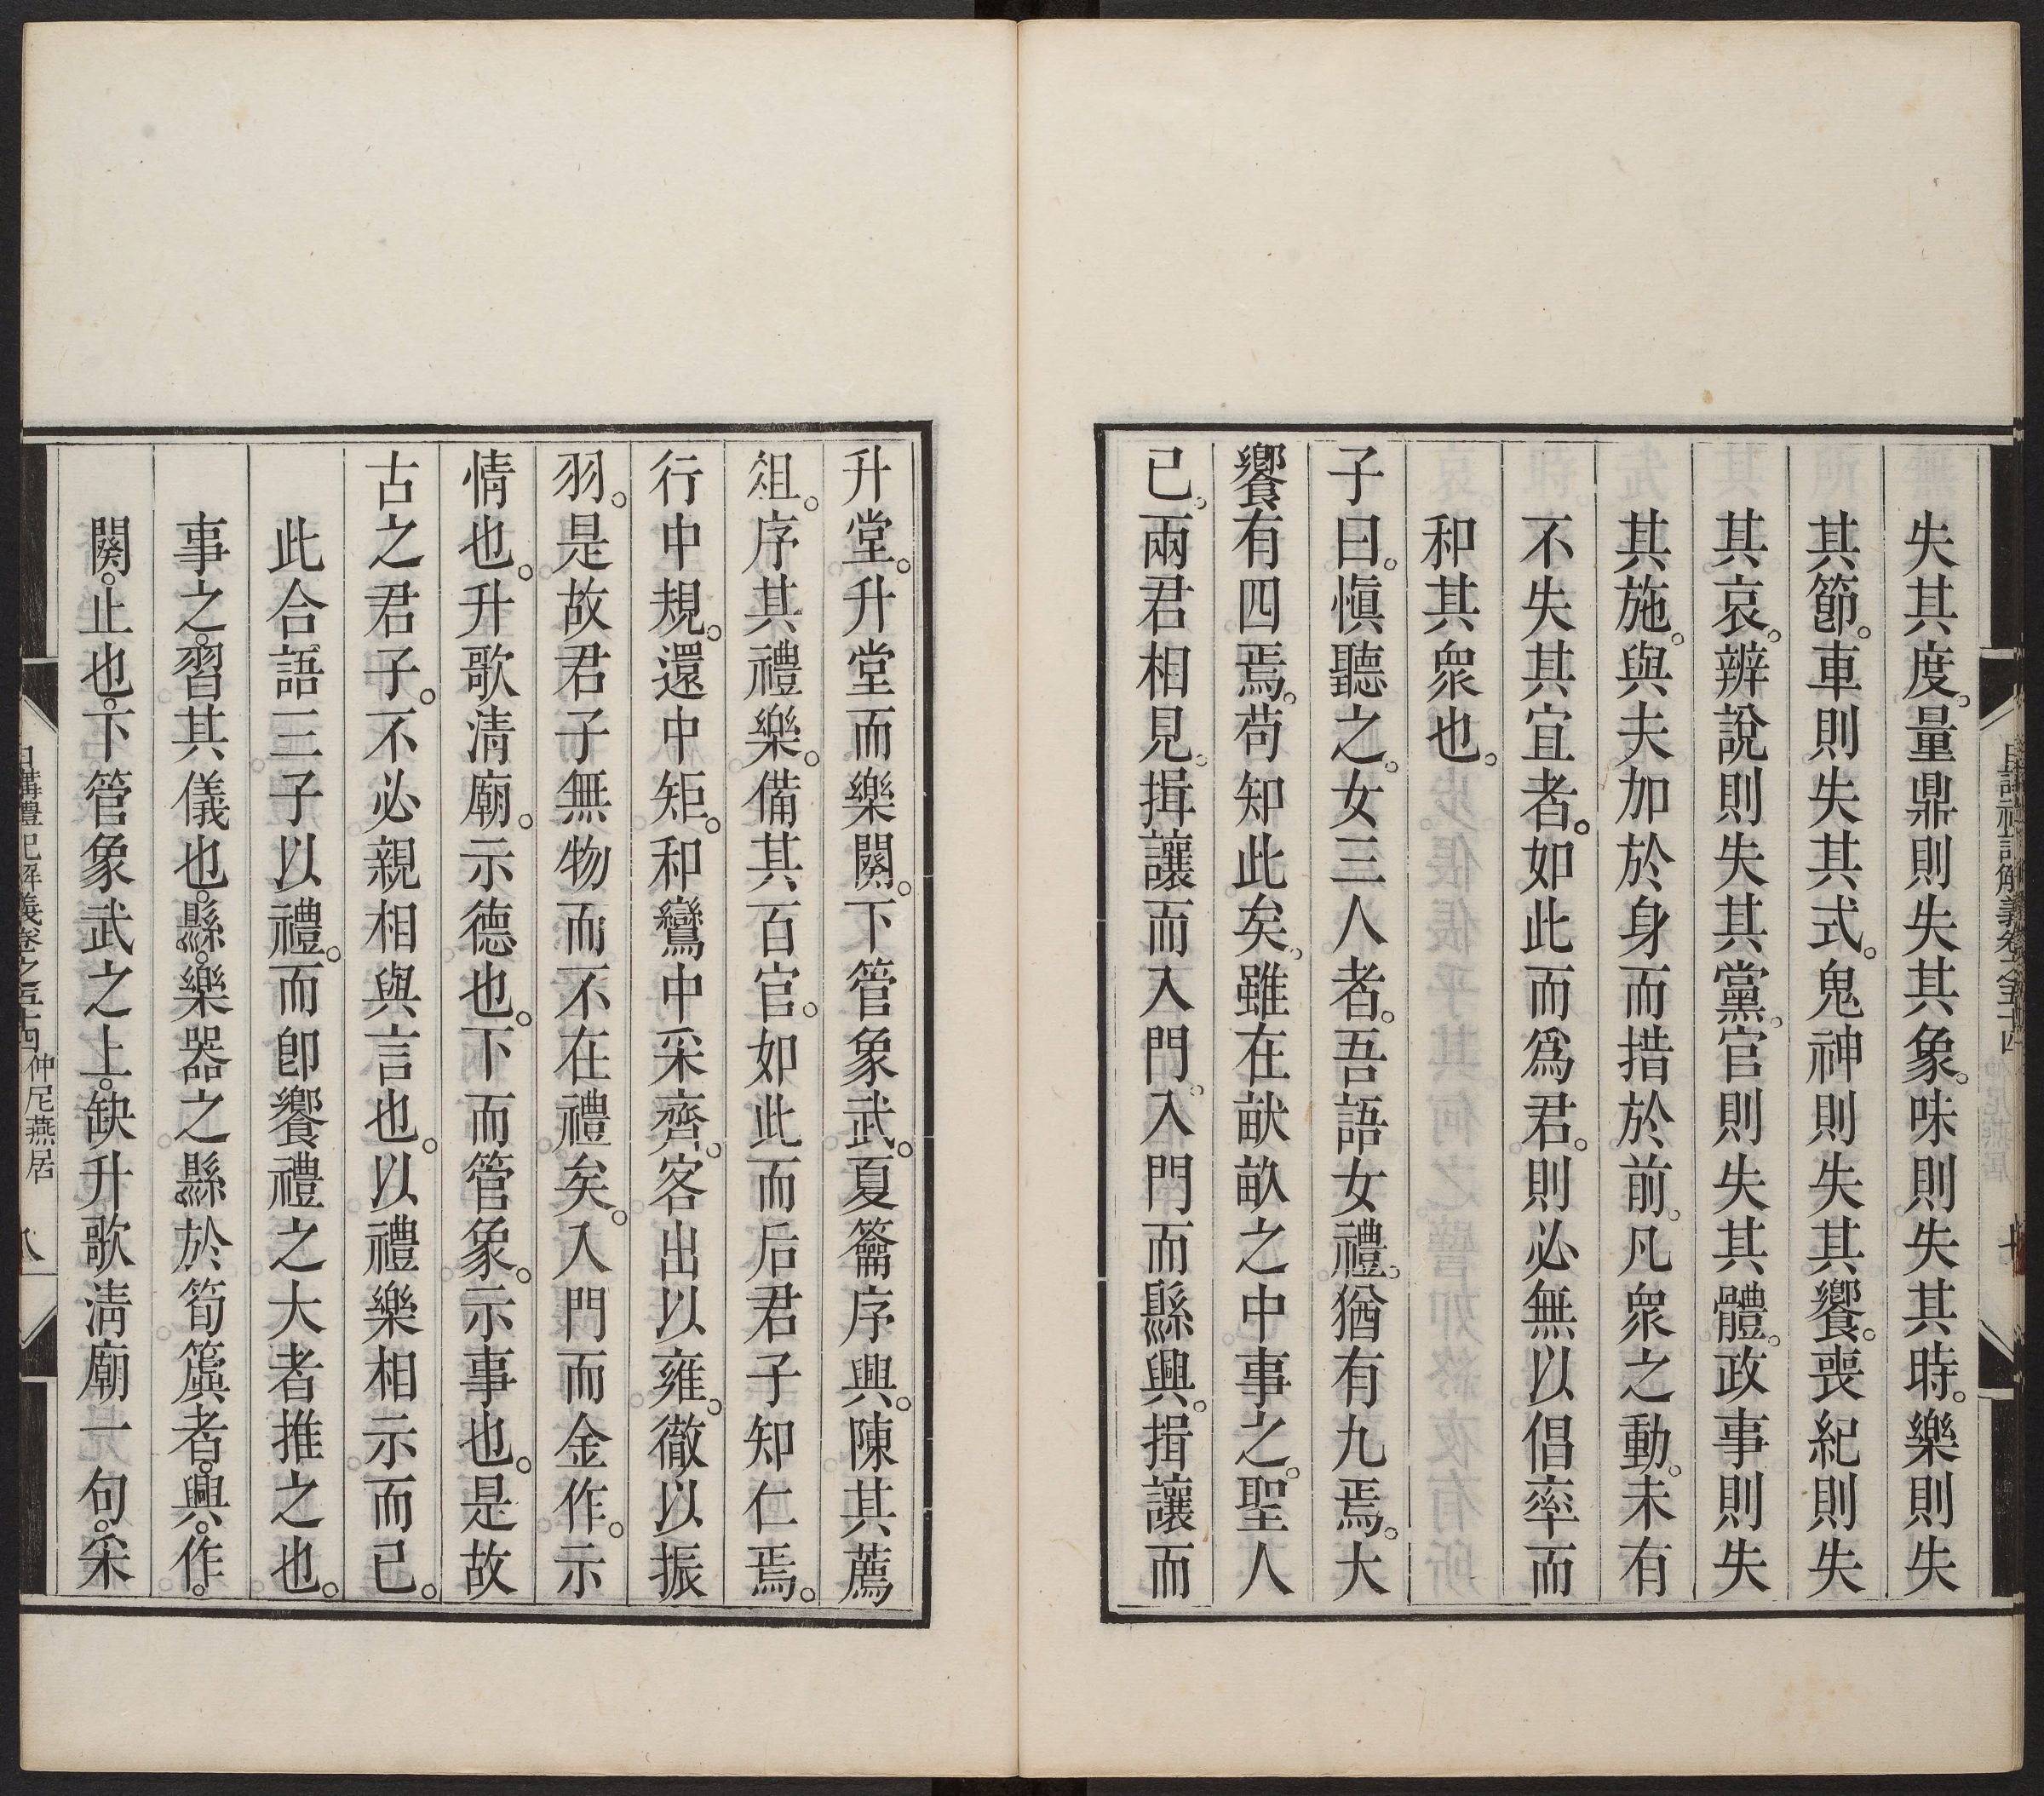 失其度。量鼎則失其象。味則失其時。樂則失
其節。車則失其式。鬼神則失其饗。喪紀則失
其哀。辨說則失其黨。官則失其體。政事則失
其施。與夫加於身而措於前。凡衆之動。未有
不失其宜者。如此而爲君。則必無以倡率而
和其衆也。
子曰。愼聽之。女三人者。吾語女禮。猶有九焉。大
饗有四焉。茍知此矣。雖在畎畝之中事之。聖人
已。兩君相見。揖讓而入門。入門而縣興。揖讓而
升堂。升堂而樂闋。下管象武。夏籥序興。陳其薦
俎。序其禮樂。備其百官。如此而后君子知仁焉。
行中規。還中矩。和鸞中采齊。客出以雍。徹以振
羽。是故君子無物而不在禮矣。入門而金作。示
情也。升歌淸廟。示德也。下而管象。示事也。是故
古之君子。不必親相與言也。以禮樂相示而已。
此合語三子以禮。而卽饗禮之大者推之也。
事之。習其儀也。縣。樂器之縣於筍簴者。興。作。
闋。止也。下管象武之上。缺升歌淸廟一句。采
日講禮記解義卷之五十四 仲尼燕居 八